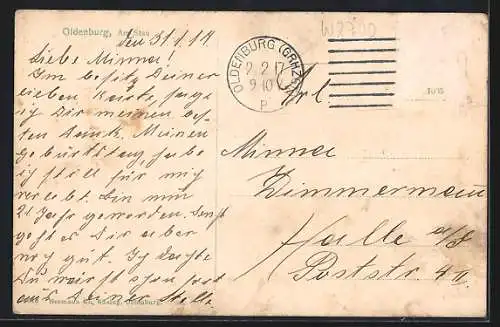 Oldenburg, Am Stau
den 31.1.17
Liebe Minna!
Im besitz Deiner
lieben Karte, sage
ich Dir meinen besten
Dank. Meinen
Geburtstag habe
ich still für mich
verlebt. Bin nun
21 Jahr geworden. Sonst
geht es Dir aber
noch gut. Ich dachte
Du wärst schon fort
aus Deiner Stelle
OLDENBURG (GRHZ)
2.2.17
9-10 V
P
Frl.
Minna
Zimmermann
Halle a/S
Poststr 4 II
Oldenburg.